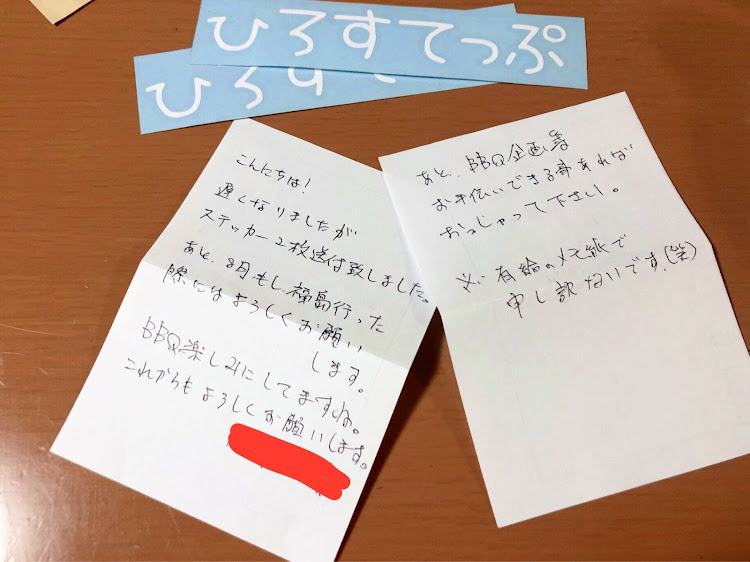 ひろすてっぷ
ひろす
こんにちは!
遅くなりましたが
ステッカー2枚送付致しました。
あと、8月もし福島行った
際にはよろしくお願い
します。
BBQ楽しみにしてますね。
これからもよろしくお願いします。
あと、BBQ企画等
お手伝いできる事あれば
おっしゃって下さい。
※有給のメモ紙で
申し訳ないです。(笑)